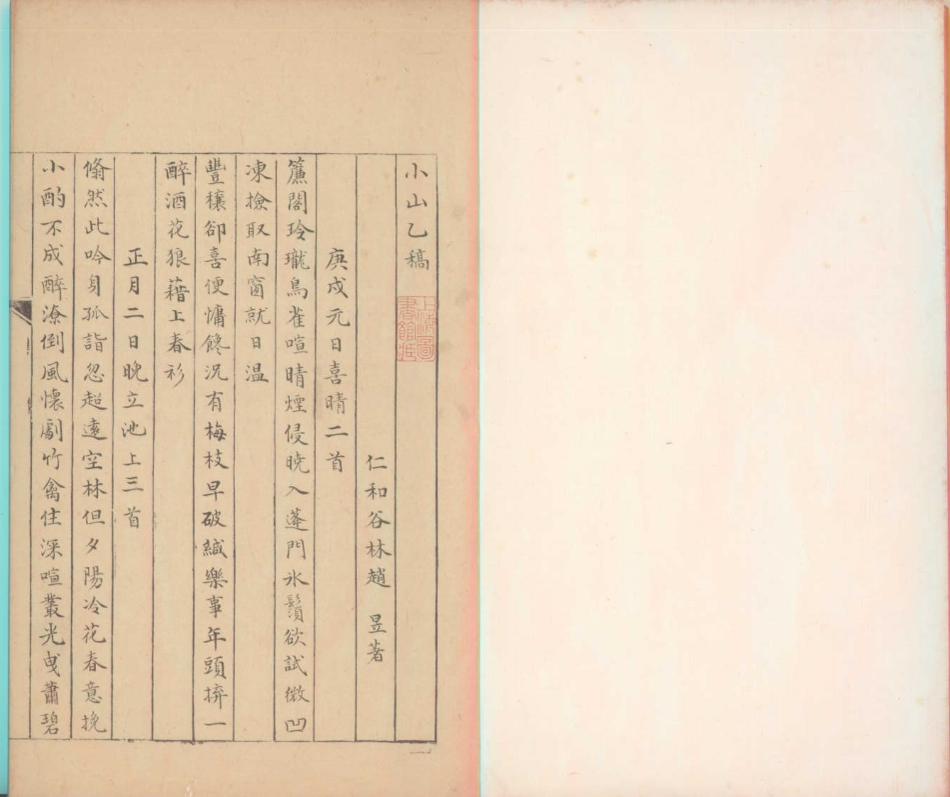 小山乙稿
上海圖書館藏
仁和谷林趙 昱著
庚戌元日喜晴二首
簾閣玲瓏鳥雀喧晴煙侵曉入蓬門氷鬚欲試微凹
凍撿取南窗就日温
豐穰卻喜便慵饞況有梅枝早破緘樂事年頭拚一
醉酒花狼藉上春衫
正月二日晚立池上三首
翛然此吟身孤詣忽超遠空林但夕陽冷花春意挽
小酌不成醉潦倒風懷劇竹禽住深喧叢光曳蕭碧
一